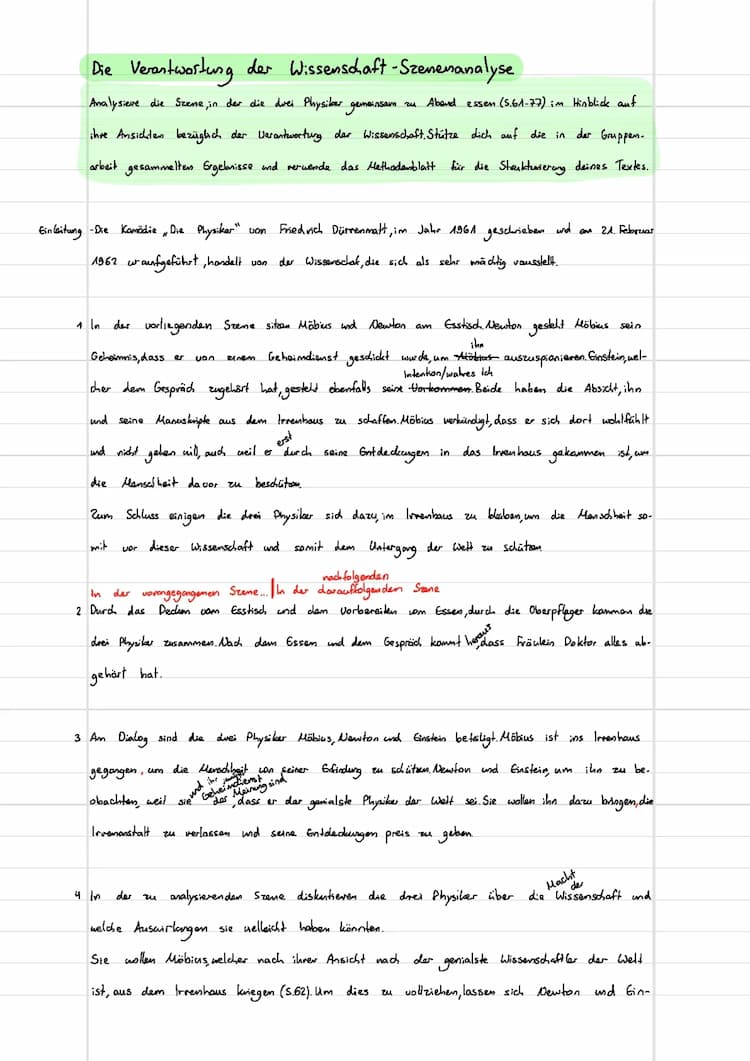 Die Verantwortung der Wissenschaft - Szenenanalyse
Analysiere die Szene, in der die drei Physiker gemeinsam zu Abend essen (S.61-77) im Hinblick auf
ihre Ansichten bezüglich der Verantwortung der Wissenschaft. Stütze dich auf die in der Gruppen-
arbeit gesammelten Ergebnisse und verwende das Methodenblatt für die Strukturierung deines Textes.
Einleitung - Die Komödie „Die Physiker" von Friedrich Dürrenmatt, im Jahr 1961 geschrieben und am 21. Februar
1962 uraufgeführt, handelt von der Wissenschaf, die sich als sehr mächtig rausstellt.
1 In der vorliegenden Szene sitzen Möbius und Newton am Esstisch. Newton gesteht Möbius sein
Geheimnis, dass er von einem Geheimdienst geschickt wurde, um Möbius ihn auszuspionieren. Einstein, wel-
cher dem Gespräch zugehört hat, gesteht ebenfalls seine Vorkommen Intention/wahres Ich. Beide haben die Absicht, ihn
und seine Manuskripte aus dem Irrenhaus zu schaffen. Möbius verkündigt, dass er sich dort wohlfühlt
und nicht gehen will, auch weil er erst durch seine Entdeckungen in das Irrenhaus gekommen ist, um
die Menschheit davor zu beschützen.
Zum Schluss einigen die drei Physiker sich dazu, im Irrenhaus zu bleiben, um die Menschheit so-
mit vor dieser Wissenschaft und somit dem Untergang der Welt zu schützen
In der vorangegangenen Szene... | In der darauffolgenden nachfolgenden Szene
2 Durch das Decken vom Esstisch und dem Vorbereiten vom Essen, durch die Oberpfleger kommen die
drei Physiker zusammen. Nach dem Essen und dem Gespräch kommt heraus, dass Fräulein Doktor alles ab-
gehört hat.
3 Am Dialog sind die drei Physiker Möbius, Newton und Einstein beteiligt. Möbius ist ins Irrenhaus
gegangen, um die Menschheit von seiner Erfindung zu schützen. Newton und Einstein, um ihn zu be-
obachten, weil sie und ihr Geheimdienst der Meinung sind, dass er der genialste Physiker der Welt sei. Sie wollen ihn dazu bringen, die
Irrenanstalt zu verlassen und seine Entdeckungen preis zu geben.
4 In der zu analysierenden Szene diskutieren die drei Physiker über die Macht der Wissenschaft und
welche Auswirkungen sie vielleicht haben könnten.
Sie wollen Möbius, welcher nach ihrer Ansicht nach der genialste Wissenschaftler der Welt
ist, aus dem Irrenhaus kriegen (S.62). Um dies zu vollziehen, lassen sich Newton und Ein-